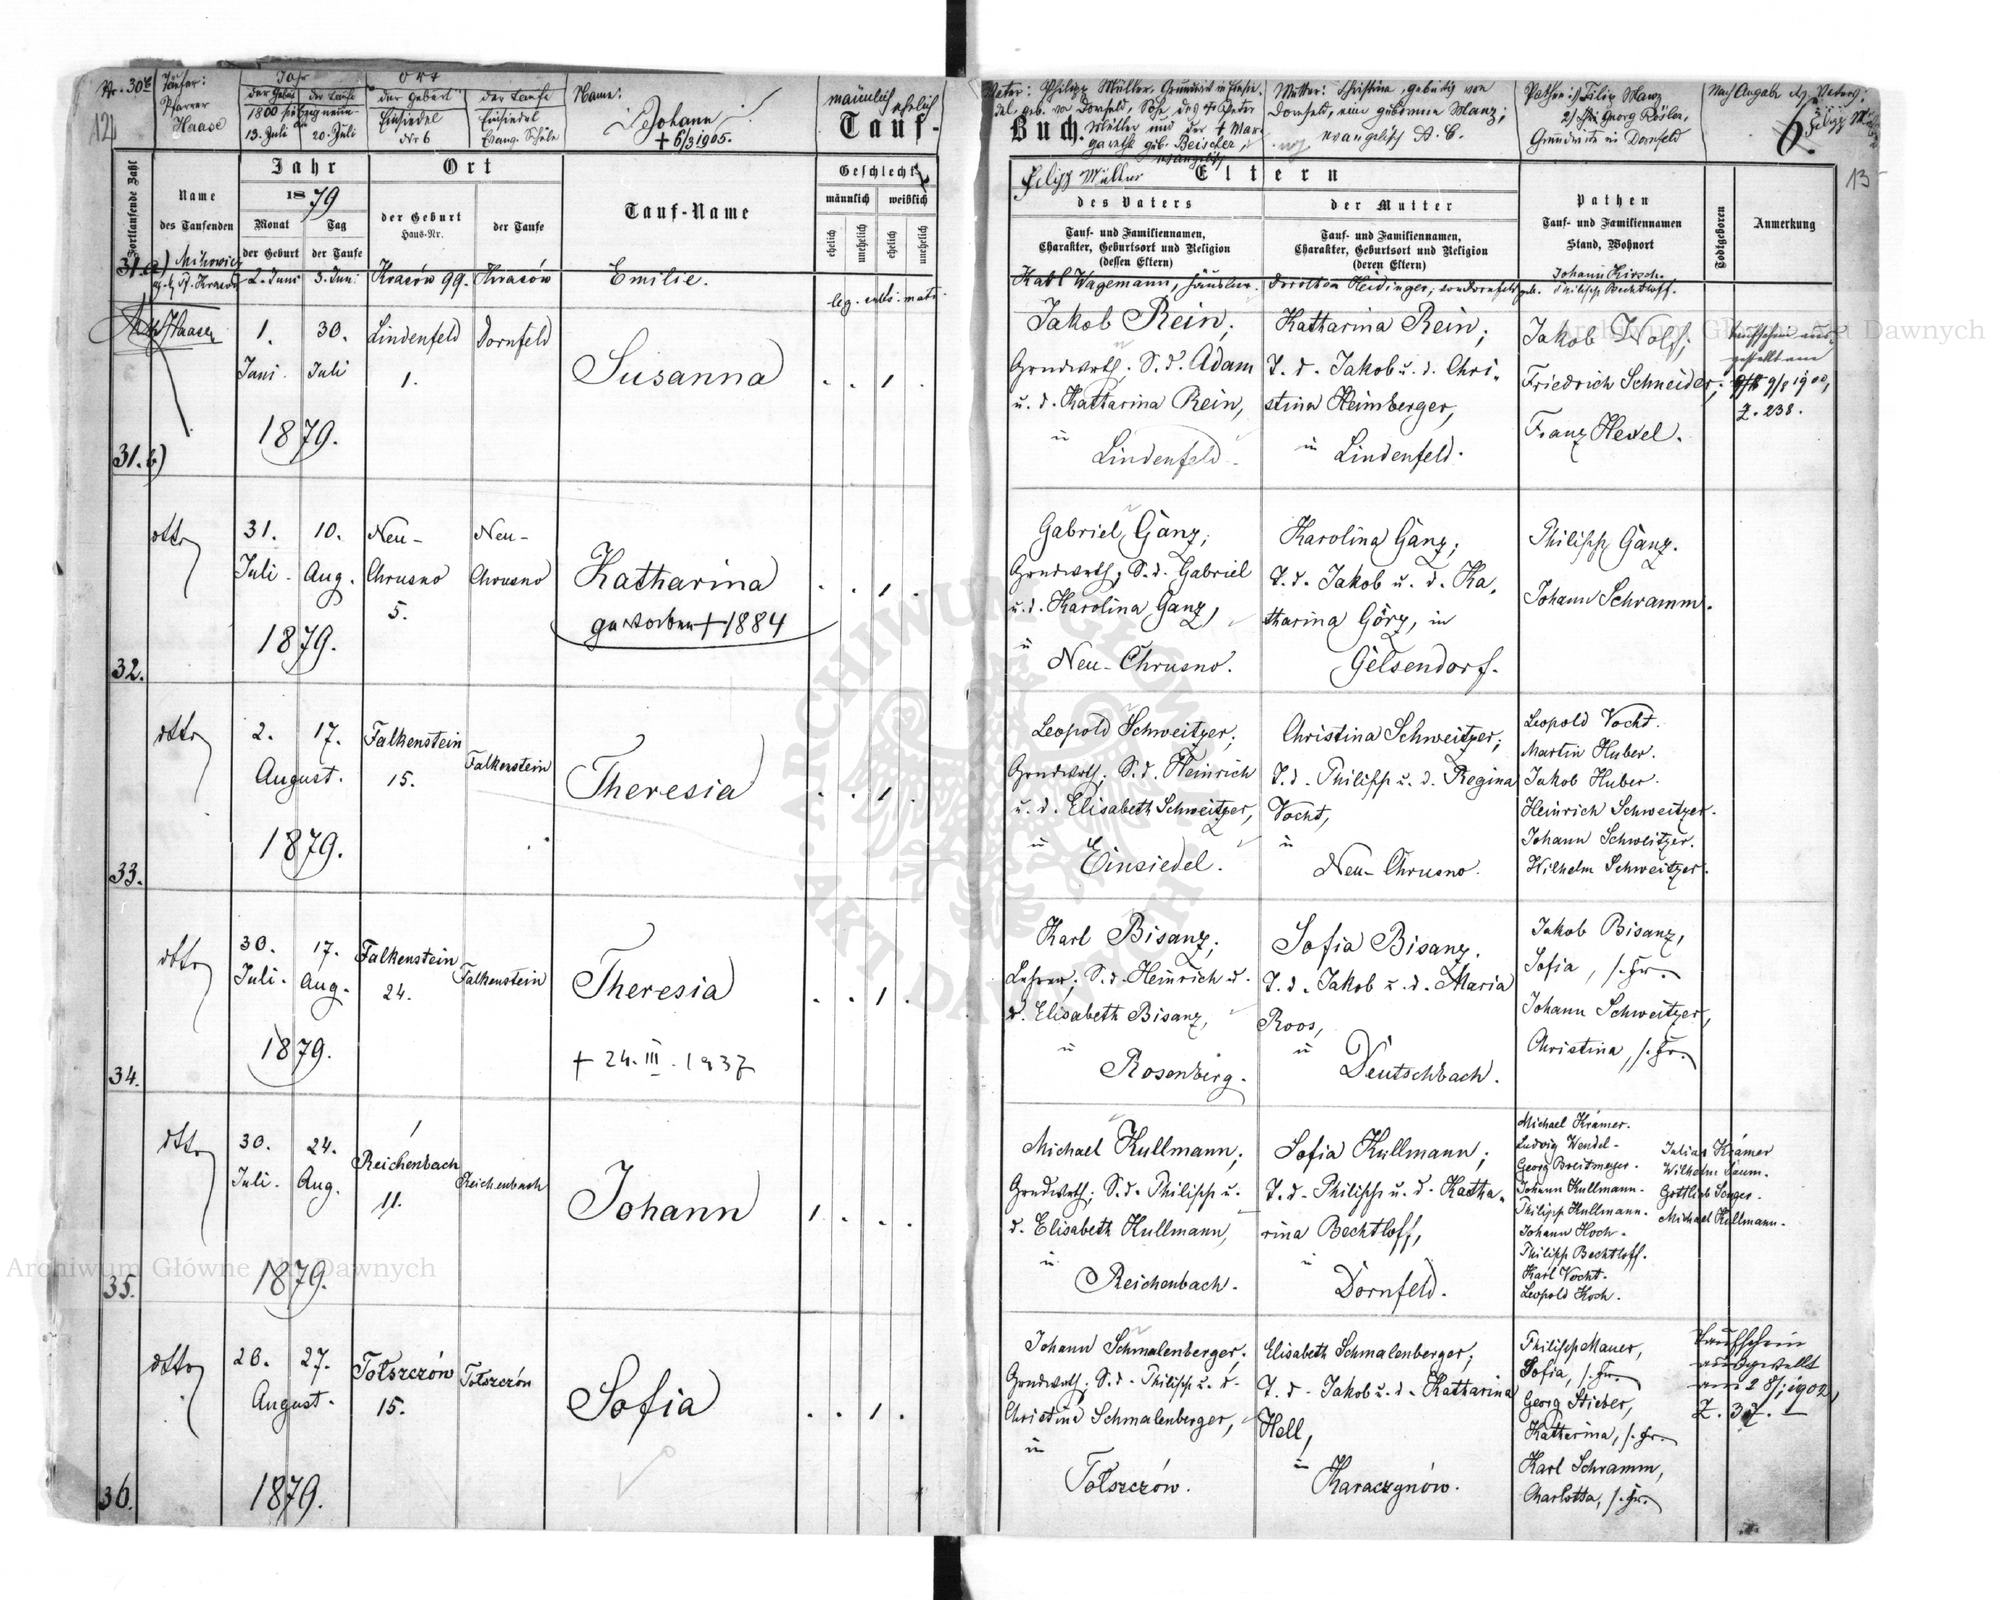 Nr. 30b
Täufer:
Pfarrer
Haase
Jahr
der Geburt
der Taufe
13. Juli
20. Juli
Ort
der Geburt
Einsiedel
Nr 6
der Taufe
Einsiedel
Evang. Schule
Name:
Johann
+ 6/3 1905.
männlich ehelich
Tauf-
12
Fortlaufende Zahl
Name
des Taufenden
Jahr
1879
Monat
Tag
der Geburt
der Taufe
Ort
der Geburt
Haus-Nr.
der Taufe
Tauf-Name
Geschlecht
männlich
weiblich
ehelich
unehelich
ehelich
unehelich
31.a)
2. Juni
3. Juni
Krasów 99.
Krasów
Emilie.
Haase
1.
30.
Lindenfeld
Dornfeld
Juni.
Juli
1.
Susanna
. . 1 .
1879.
31.b)
dtto
31.
10.
Neu-
Neu-
Juli.
Aug.
Chrusno
Chrusno
5.
Katharina
gestorben + 1884
. . 1 .
1879.
32.
dtto
2.
17.
Falkenstein
Falkenstein
August.
15.
Theresia
. . 1 .
1879.
33.
dtto
30.
17.
Falkenstein
Falkenstein
Juli.
Aug.
24.
Theresia
. . 1 .
1879.
+ 24. III. 1937
34.
dtto
30.
24.
Reichenbach
Reichenbach
Juli.
Aug.
11.
Johann
1 . . .
1879.
35.
dtto
26.
27.
Totszczów
Totszczów
August.
15.
Sofia
. . 1 .
1879.
36.
Vater: Philipp Müller, Grundwirt in Einsie-
del, geb. in Dornfeld, Sohn des + Peter
Buch.
Müller und der + Marg
garethe geb. Beischer,
evangelisch
Filipp Müller
Mutter: Christine, gebürtig von
Dornfeld, eine geborene Manz;
evangelisch A. C.
Pathen: 1) Filip Manz
2) Georg Rösler,
Grundwirte in Dornfeld
Nach Angabe des Vaters:
6.
13
Eltern
des Vaters
Tauf- und Familiennamen,
Charakter, Geburtsort und Religion
(dessen Eltern)
der Mutter
Tauf- und Familiennamen,
Charakter, Geburtsort und Religion
(deren Eltern)
Pathen
Tauf- und Familiennamen
Stand, Wohnort
Todtgeboren
Anmerkung
Karl Wagemann, Häusler.
Dorothea Heidinger,
Johann Hirsch.
Philipp Bechtloff.
Jakob Rein;
Grndwrth; S. d. Adam
u. d. Katharina Rein,
in
Lindenfeld.
Katharina Rein;
T. d. Jakob u. d. Chri-
stina Heimberger,
in Lindenfeld.
Jakob Wolf;
Friedrich Schneider;
Franz Hexel.
Taufschein aus-
gestellt am
9/8 1900,
Z. 238.
Gabriel Ganz;
Grndwrth; S. d. Gabriel
u. d. Karolina Ganz,
in
Neu-Chrusno.
Karolina Ganz;
T. d. Jakob u. d. Ka-
tharina Görz, in
Gelsendorf.
Philipp Ganz.
Johann Schramm.
Leopold Schweitzer;
Grndwrth; S. d. Heinrich
u. d. Elisabeth Schweitzer,
in
Einsiedel.
Christina Schweitzer;
T. d. Philipp u. d. Regina
Vocht,
in
Neu-Chrusno.
Leopold Vocht.
Martin Huber.
Jakob Huber.
Heinrich Schweitzer.
Johann Schweitzer.
Wilhelm Schweitzer.
Karl Bisanz;
Lehrer; S. d. Heinrich u.
d. Elisabeth Bisanz,
in
Rosenberg.
Sofia Bisanz.
T. d. Jakob u. d. Maria
Roos,
in
Deutschbach.
Jakob Bisanz,
Sofia, s. Fr.
Johann Schweitzer,
Christina, s. Fr.
Michael Kullmann;
Grndwrth; S. d. Philipp u.
d. Elisabeth Kullmann,
in
Reichenbach.
Sofia Kullmann;
T. d. Philipp u. d. Katha-
rina Bechtloff,
in
Dornfeld.
Michael Krämer.
Ludwig Wendel.
Georg Breitmeyer.
Johann Kullmann.
Philipp Kullmann.
Johann Koch.
Philipp Bechtloff.
Karl Vocht.
Leopold Koch.
Julian Krämer
Wilhelm Daum.
Gottlieb Senger.
Michael Kullmann.
Johann Schmalenberger;
Grndwrth; S. d. Philipp u. d.
Christine Schmalenberger,
in
Totszczów.
Elisabeth Schmalenberger;
T. d. Jakob u. d. Katharina
Hell,
in
Karaczynów.
Philipp Mauer,
Sofia, s. Fr.
Georg Stieber,
Katharina, s. Fr.
Karl Schramm,
Charlotta, s. Fr.
Taufschein
ausgestellt
am 2 8/1 1902,
Z. 37.
Archiwum Główne Akt Dawnych
Archiwum Główne Akt Dawnych
ARCHIWUM GŁÓWNE AKT DAWNYCH